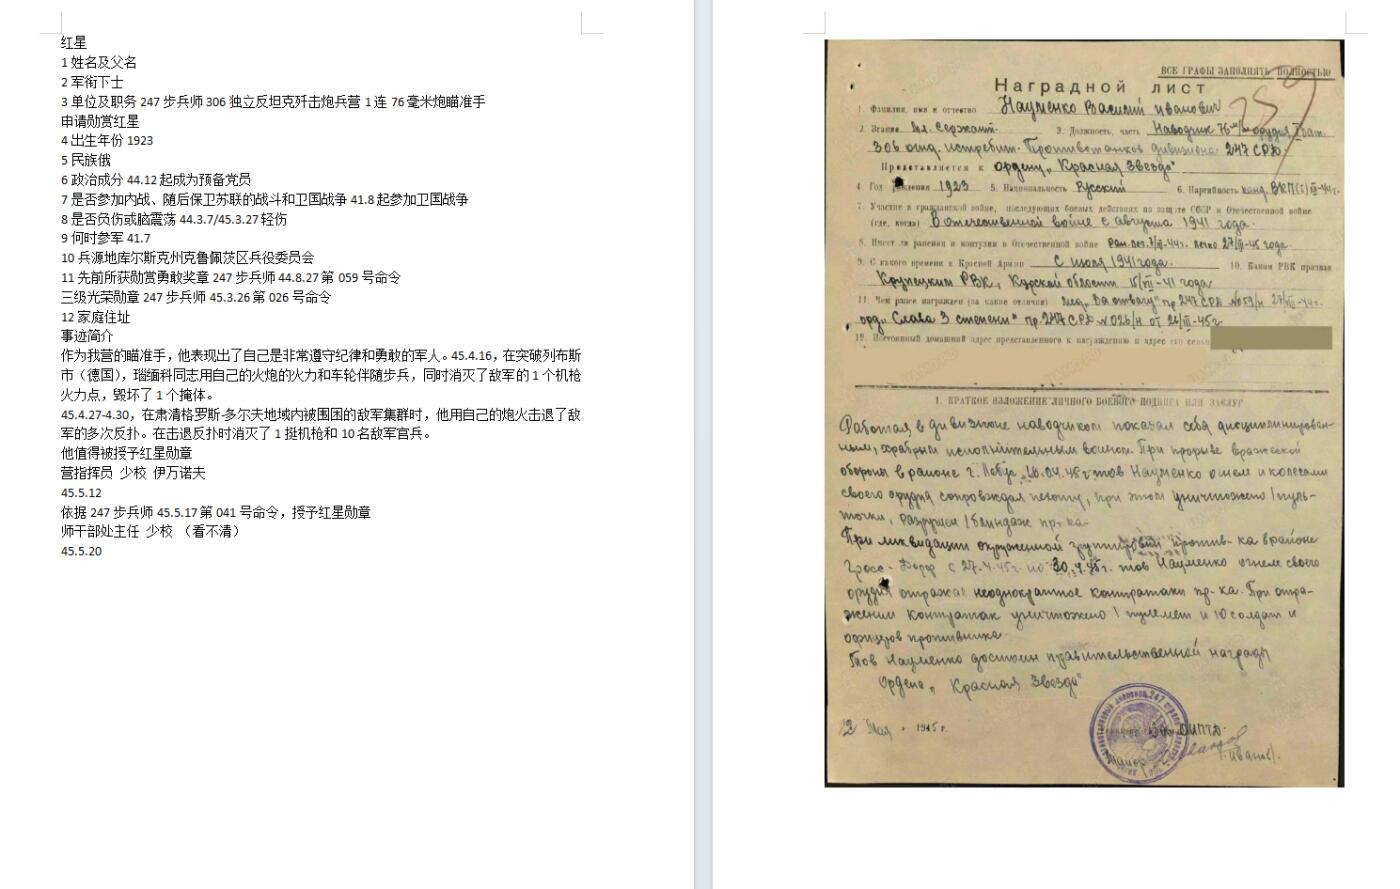 红星
1 姓名及父名
2 军衔下士
3 单位及职务 247 步兵师 306 独立反坦克歼击炮兵营 1 连 76 毫米炮瞄准手
申请勋赏红星
4 出生年份 1923
5 民族俄
6 政治成分 44.12 起成为预备党员
7 是否参加内战、随后保卫苏联的战斗和卫国战争 41.8 起参加卫国战争
8 是否负伤或脑震荡 44.3.7/45.3.27 轻伤
9 何时参军 41.7
10 兵源地库尔斯克州克鲁佩茨区兵役委员会
11 先前所获勋赏勇敢奖章 247 步兵师 44.8.27 第 059 号命令
三级光荣勋章 247 步兵师 45.3.26 第 026 号命令
12 家庭住址
事迹简介
作为我营的瞄准手，他表现出了自己是非常遵守纪律和勇敢的军人。45.4.16，在突破列布斯
市（德国），瑙缅科同志用自己的火炮的火力和车轮伴随步兵，同时消灭了敌军的 1 个机枪
火力点，毁坏了 1 个掩体。
45.4.27-4.30，在肃清格罗斯-多尔夫地域内被围困的敌军集群时，他用自己的炮火击退了敌
军的多次反扑。在击退反扑时消灭了 1 挺机枪和 10 名敌军官兵。
他值得被授予红星勋章
营指挥员 少校 伊万诺夫
45.5.12
依据 247 步兵师 45.5.17 第 041 号命令，授予红星勋章
师干部处主任 少校 （看不清）
45.5.20
ВСЕ ГРАФЫ ЗАПОЛНЯТЬ ПОЛНОСТЬЮ
Наградной лист
259
1. Фамилия, имя и отчество Науменко Василий Иванович
2. Звание Мл. Сержант. 3. Должность, часть Наводчик 76 м/м орудия
306 отд. истребит. Противотанков дивизиона 247 СРД
Представляется к ордену „Красная Звезда"
4. Год рождения 1923 5. Национальность Русский 6. Партийность канд. ВКП(б)
7. Участие в гражданской войне, последующих боевых действиях по защите СССР и Отечественной войне
(где, когда) В отечественной войне с августа 1941 года.
8. Имеет ли ранения и контузии в Отечественной войне Ран. легко 27/III-45 года
9. С какого времени в Красной Армии С июля 1941 года. 10. Каким РВК призван
Крупецким РВК, Курской области 15/VII-41 года
11. Чем ранее награжден (за какие отличия) мед. „За отвагу" пр. 247 СРД №59/н
орд. „Слава 3 степени" пр. 247 СРД №026/н от 26/III-45г
12. Постоянный домашний адрес представленного к награждению и адрес его семьи
I. КРАТКОЕ ИЗЛОЖЕНИЕ ЛИЧНОГО БОЕВОГО ПОДВИГА ИЛИ ЗАСЛУГ
Работая в дивизионе наводчиком показал себя дисциплинирован-
ным, храбрым исполнительным воином. При прорыве вражеской
обороны в районе г. Лебус 16.04.45г тов Науменко огнем и колесами
своего орудия сопровождал пехоту, при этом уничтожено 1 пуль-
точки, разрушен 1 блиндаж пр-ка.
При ликвидации окруженной группировки против-ка в районе
Гросс-Дорф с 27.4.45г. по 30.4.45г. тов Науменко огнем своего
орудия отражал неоднократное контратаки пр-ка. При отра-
жении контратак уничтожено 1 пулемет и 10 солдат и
офицеров противника.
Тов Науменко достоин правительственной награды
Ордена „Красная Звезда"
12 Мая 1945 г. ОИПТД
Майор /Иванов/.